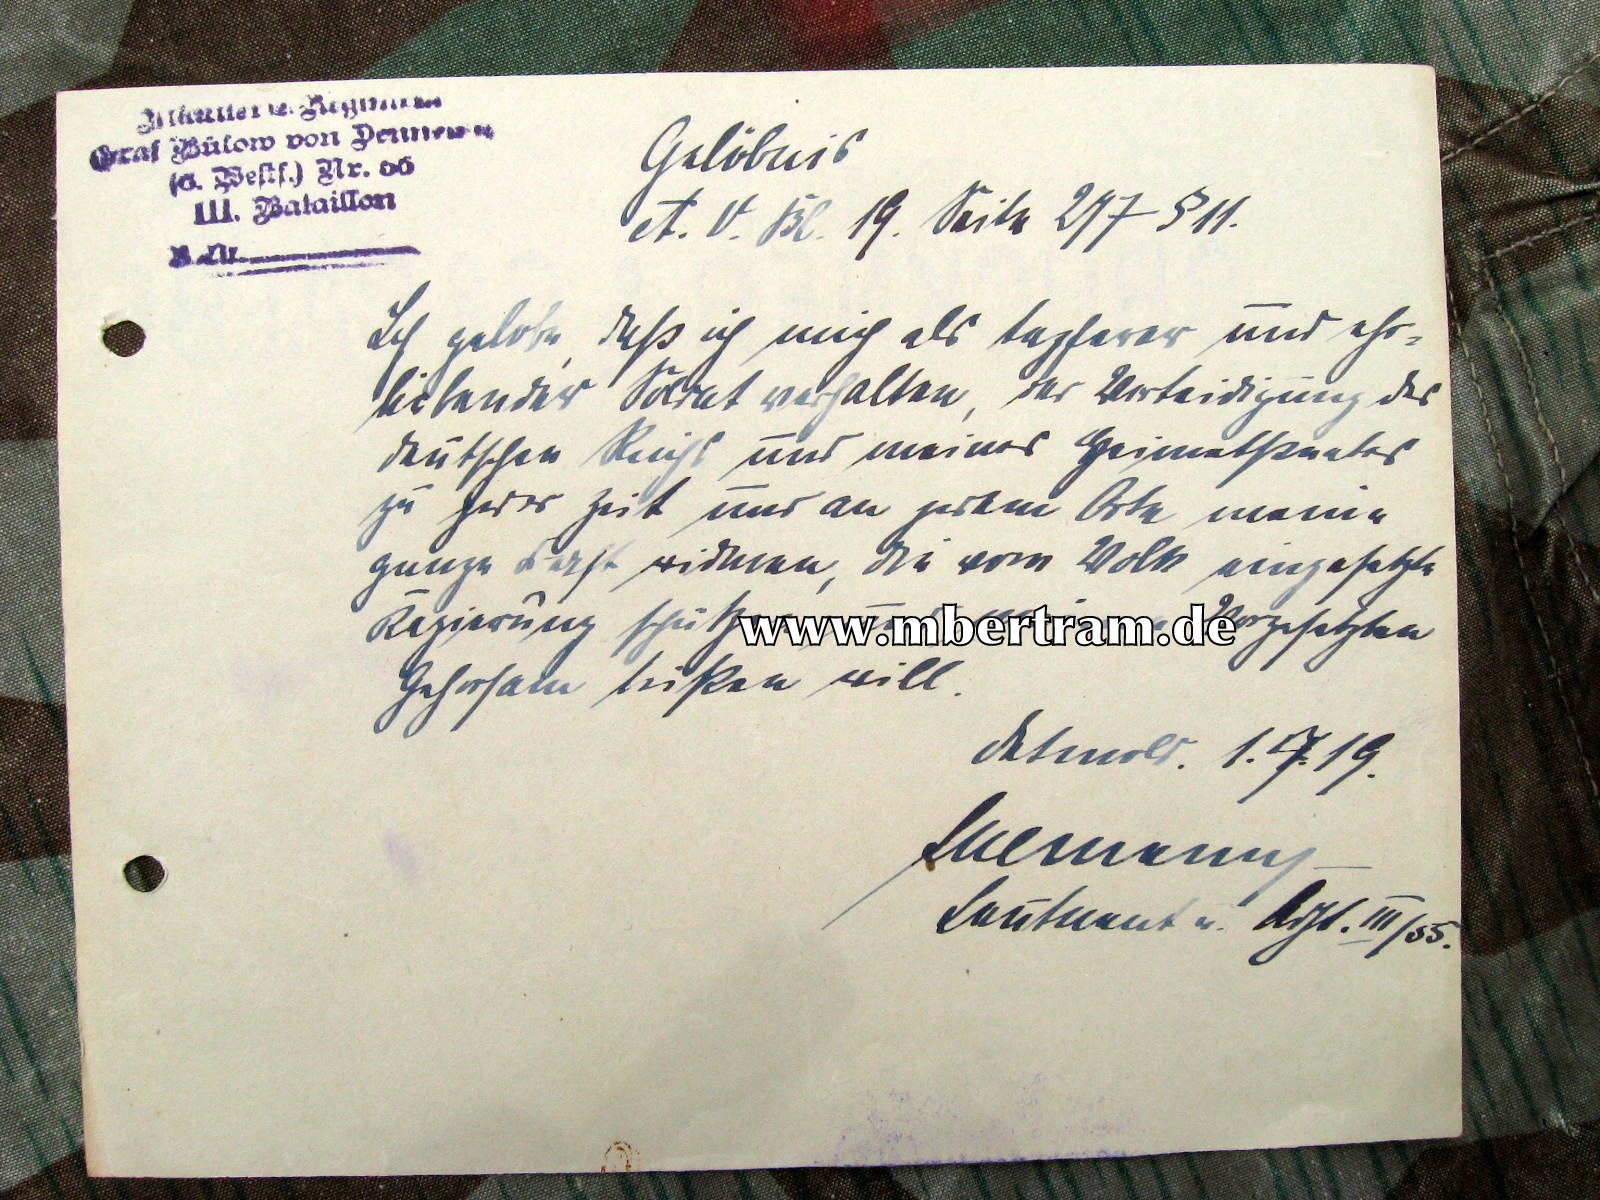 Infanterie-Regiment
Graf Bülow von Dennewitz
(6. Westf.) Nr. 55
III. Bataillon
B.-Nr.
Gelöbnis
A. V. Bl. 19. Seite 297 § 11.
Ich gelobe, daß ich mich als tapferer und ehr-
liebender Soldat verhalten, der Verteidigung des
deutschen Reichs und meines Heimatstaates
zu jeder Zeit und an jedem Orte meine
ganze Kraft widmen, die vom Volk eingesetzte
Regierung schützen und meinen Vorgesetzten
Gehorsam leisten will.
www.mbertram.de
Detmold. 1.7.19.
Leutnant u. Adjt. III/55.